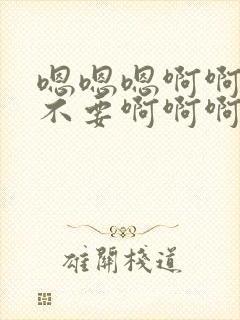 嗯嗯嗯啊啊
不要啊啊啊
雄關棧道